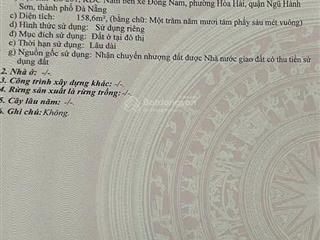 Nam bến xe Đông Nam, phường Hòa Hải, quận Ngũ Hành
Sơn, thành phố Đà Nẵng
c) Diện tích: 158,6m², (bằng chữ: Một trăm năm mươi tám phẩy sáu mét vuông)
d) Hình thức sử dụng: Sử dụng riêng
đ) Mục đích sử dụng: Đất ở tại đô thị
e) Thời hạn sử dụng: Lâu dài
g) Nguồn gốc sử dụng: Nhận chuyển nhượng đất được Nhà nước giao đất có thu tiền sử
dụng đất
2. Nhà ở: -/-
3. Công trình xây dựng khác: -/-
4. Rừng sản xuất là rừng trồng: -/-
5. Cây lâu năm: -/-
6. Ghi chú: Không.
Batdongsan